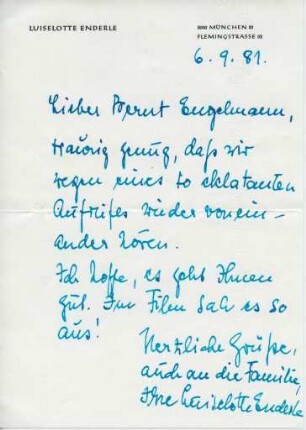 LUISELOTTE ENDERLE
MÜNCHEN
FLEMINGSTRASSE
6.9.81.
Lieber Bernt Engelmann,
traurig genug, daß wir
wegen eines so eklatanten
Aufrufes wieder vonein-
ander hören.
Ich hoffe, es geht Ihnen
gut. Im Film sah es so
aus!
Herzliche Grüße,
auch an die Familie,
Ihre Luiselotte Enderle